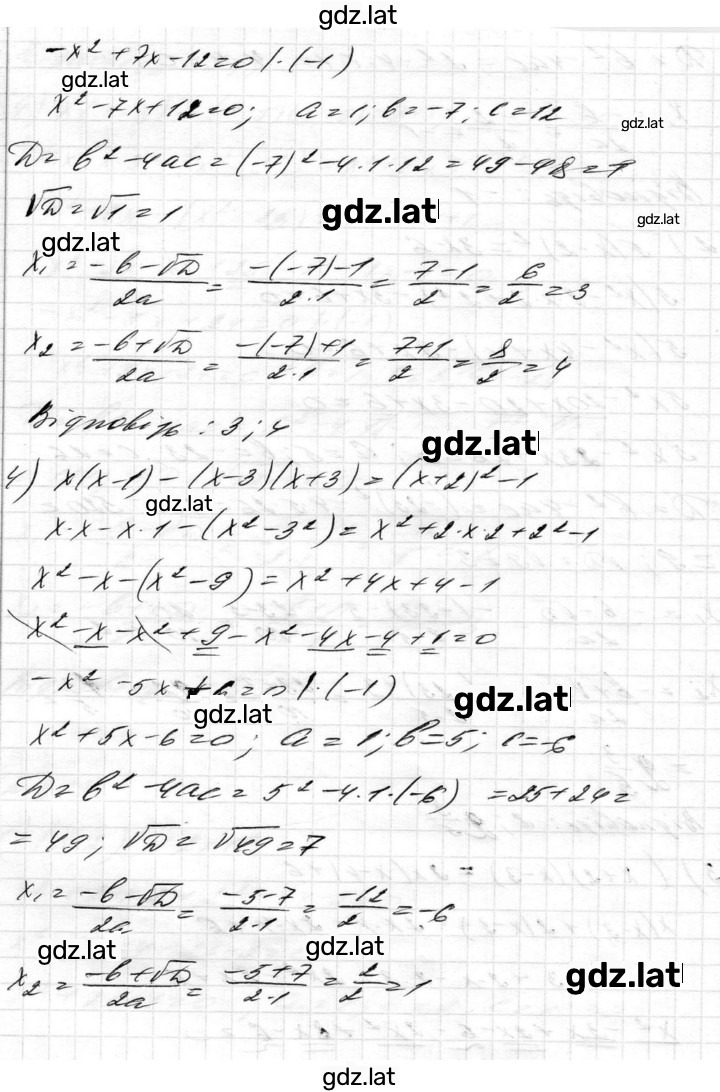 gdz.lat
-x² + 7x - 12 = 0 | · (-1)
gdz.lat
x² - 7x + 12 = 0; a = 1; b = -7; c = 12
gdz.lat
D = b² - 4ac = (-7)² - 4·1·12 = 49 - 48 = 1
√D = √1 = 1
gdz.lat
gdz.lat
gdz.lat
x₁ = (-b - √D)/2a = (-(-7) - 1)/2·1 = (7 - 1)/2 = 6/2 = 3
x₂ = (-b + √D)/2a = (-(-7) + 1)/2·1 = (7 + 1)/2 = 8/2 = 4
Відповідь: 3; 4
gdz.lat
4) x(x - 1) - (x - 3)(x + 3) = (x + 2)² - 1
gdz.lat
x·x - x·1 - (x² - 3²) = x² + 2·x·2 + 2² - 1
x² - x - (x² - 9) = x² + 4x + 4 - 1
x² - x - x² + 9 - x² - 4x - 4 + 1 = 0
-x² - 5x + 6 = 0 | · (-1)
gdz.lat
gdz.lat
x² + 5x - 6 = 0; a = 1; b = 5; c = -6
D = b² - 4ac = 5² - 4·1·(-6) = 25 + 24 =
= 49; √D = √49 = 7
x₁ = (-b - √D)/2a = (-5 - 7)/2·1 = -12/2 = -6
gdz.lat
gdz.lat
x₂ = (-b + √D)/2a = (-5 + 7)/2·1 = 2/2 = 1
gdz.lat
gdz.lat